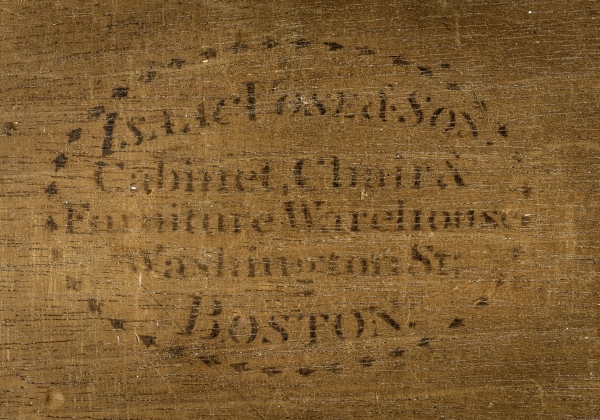 ISAAC VOSE & SON,
Cabinet, Chair &
Furniture Warehouse
Washington St:
BOSTON.